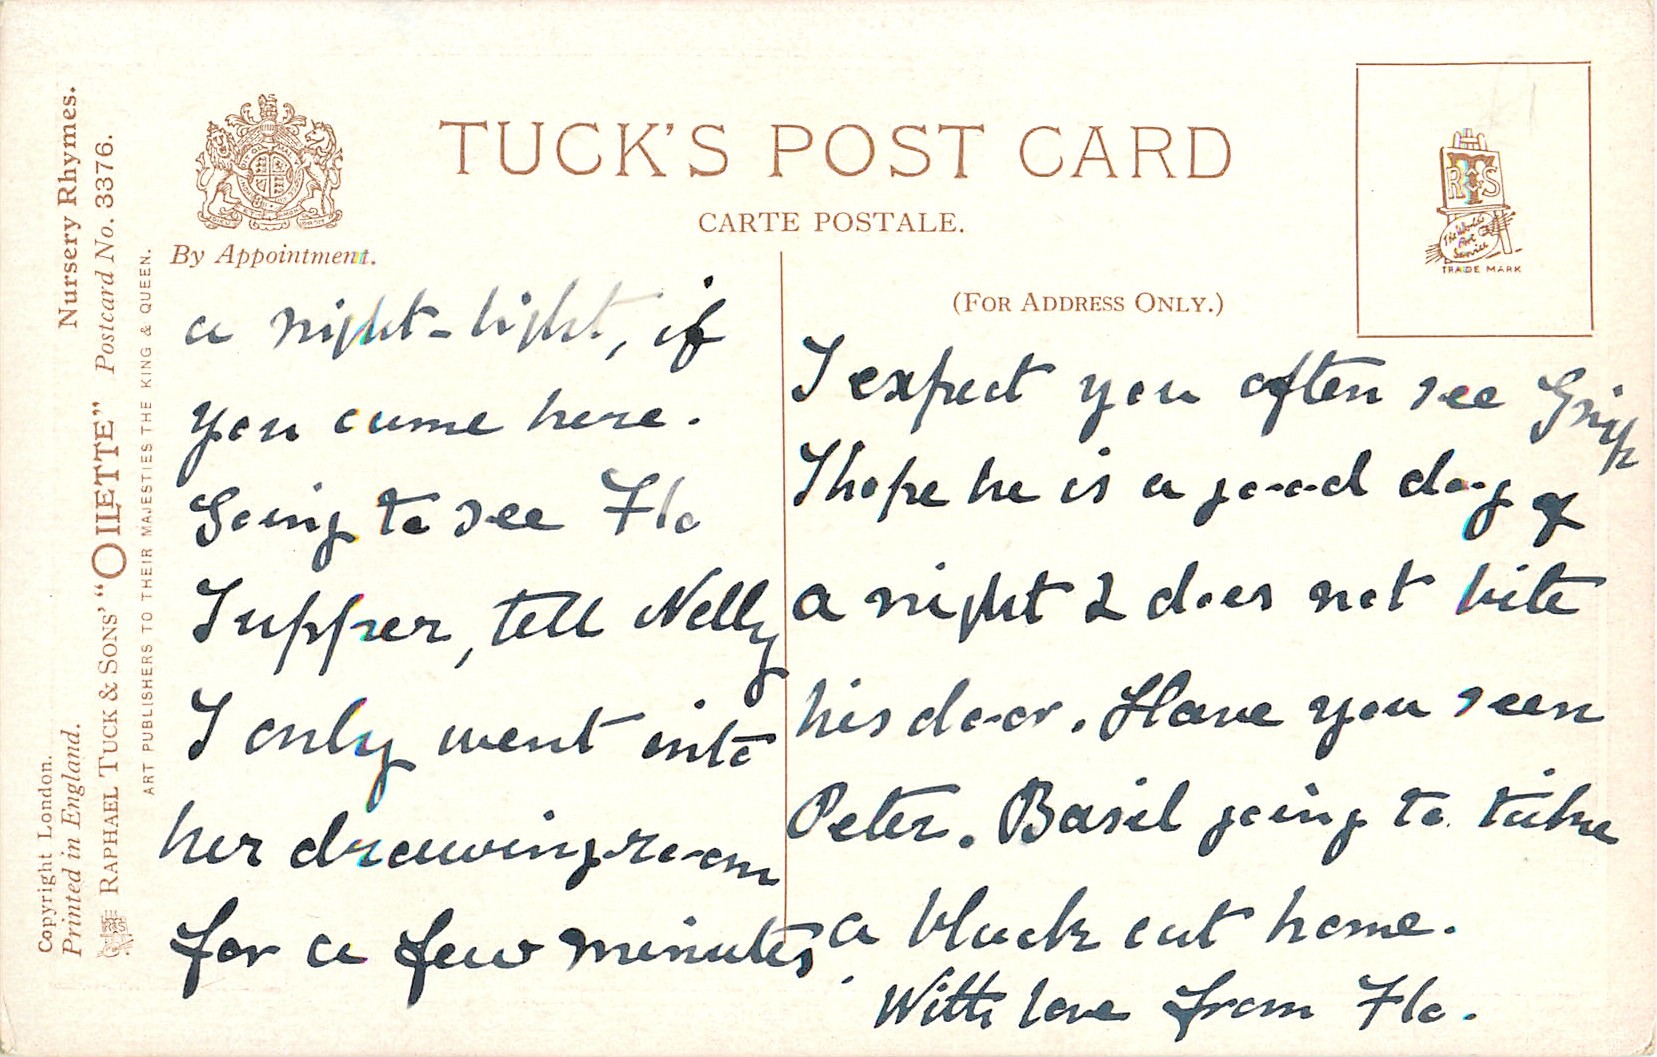 Nursery Rhymes.
Postcard No. 3376.
Copyright London.
Printed in England.
RAPHAEL TUCK & SONS' "OILETTE"
ART PUBLISHERS TO THEIR MAJESTIES THE KING & QUEEN.
By Appointment.
TUCK'S POST CARD
CARTE POSTALE.
(FOR ADDRESS ONLY.)
RTS
The World's
Art
Service
TRADE MARK
a night-light, if
you come here.
Going to see Flo
Supper, tell Nelly
I only went into
her drawing-room
for a few minutes
I expect you often see Grip
I hope he is a good dog
a night & does not bite
his door. Have you seen
Peter. Basil going to take
a black cat home.
With love from Flo.